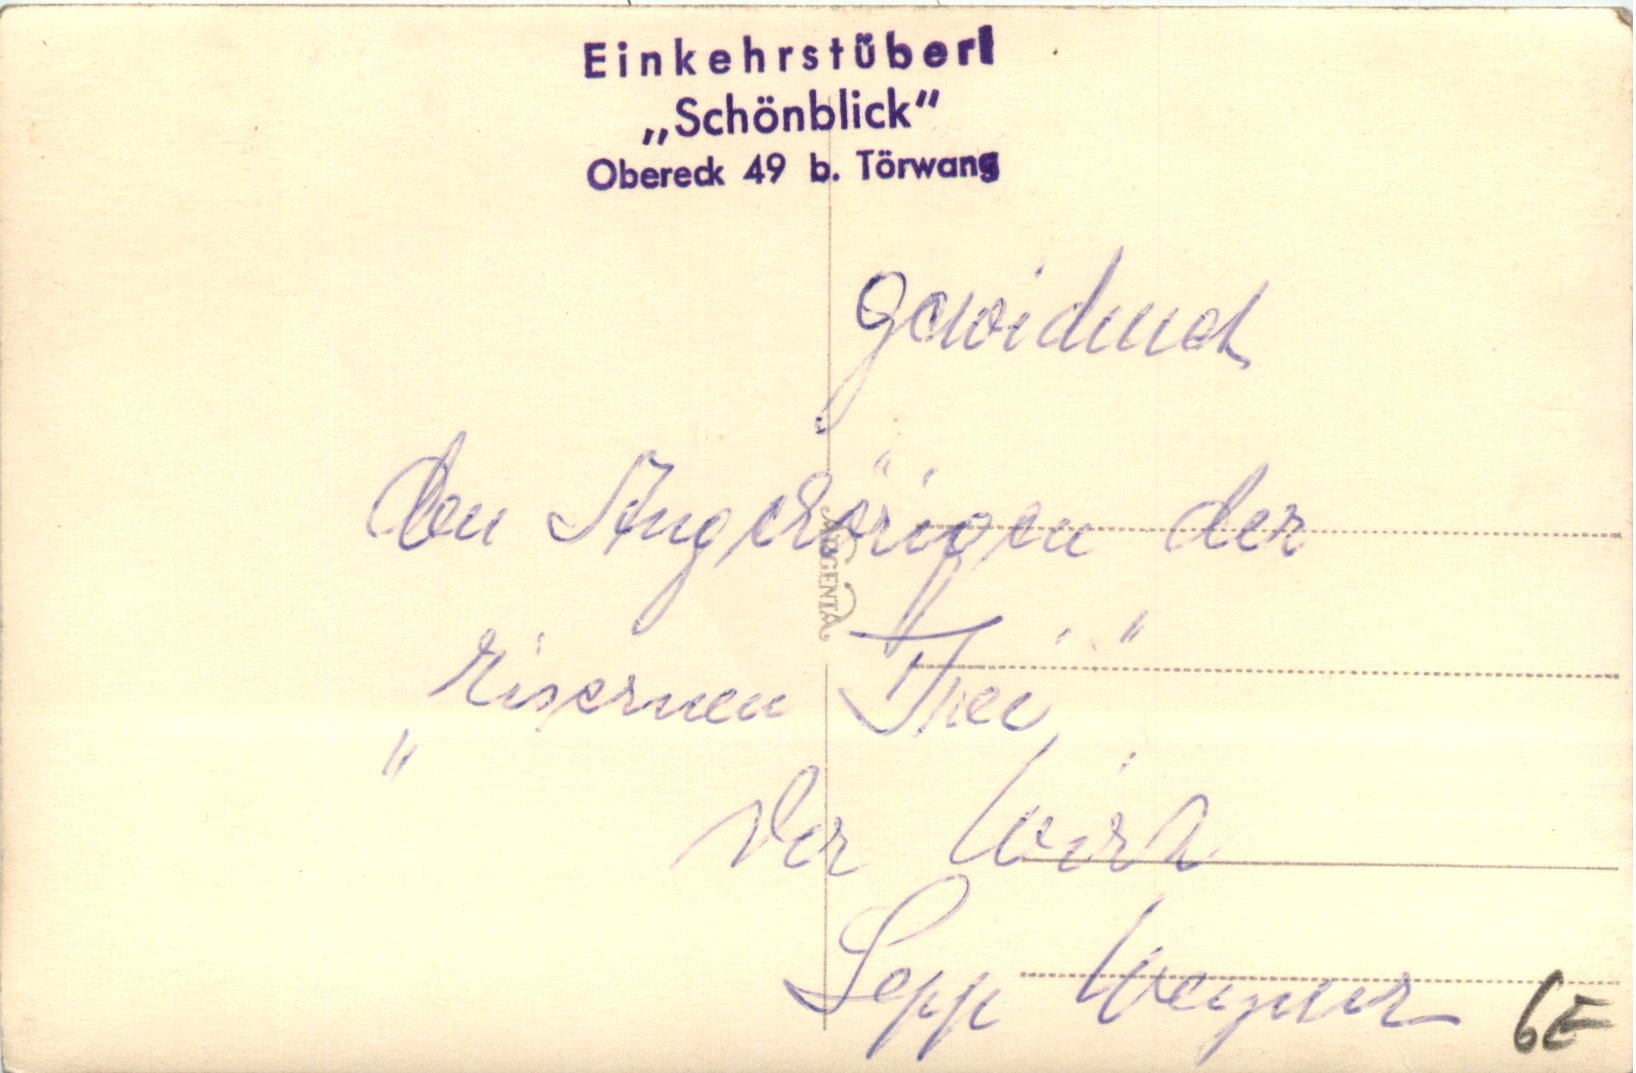 Einkehrstüberl
„Schönblick“
Obereck 49 b. Törwang
gewidmet
den Angehörigen der
„Eisernen Drei“
MIGENTA
Der Wirt
Sepp
6E